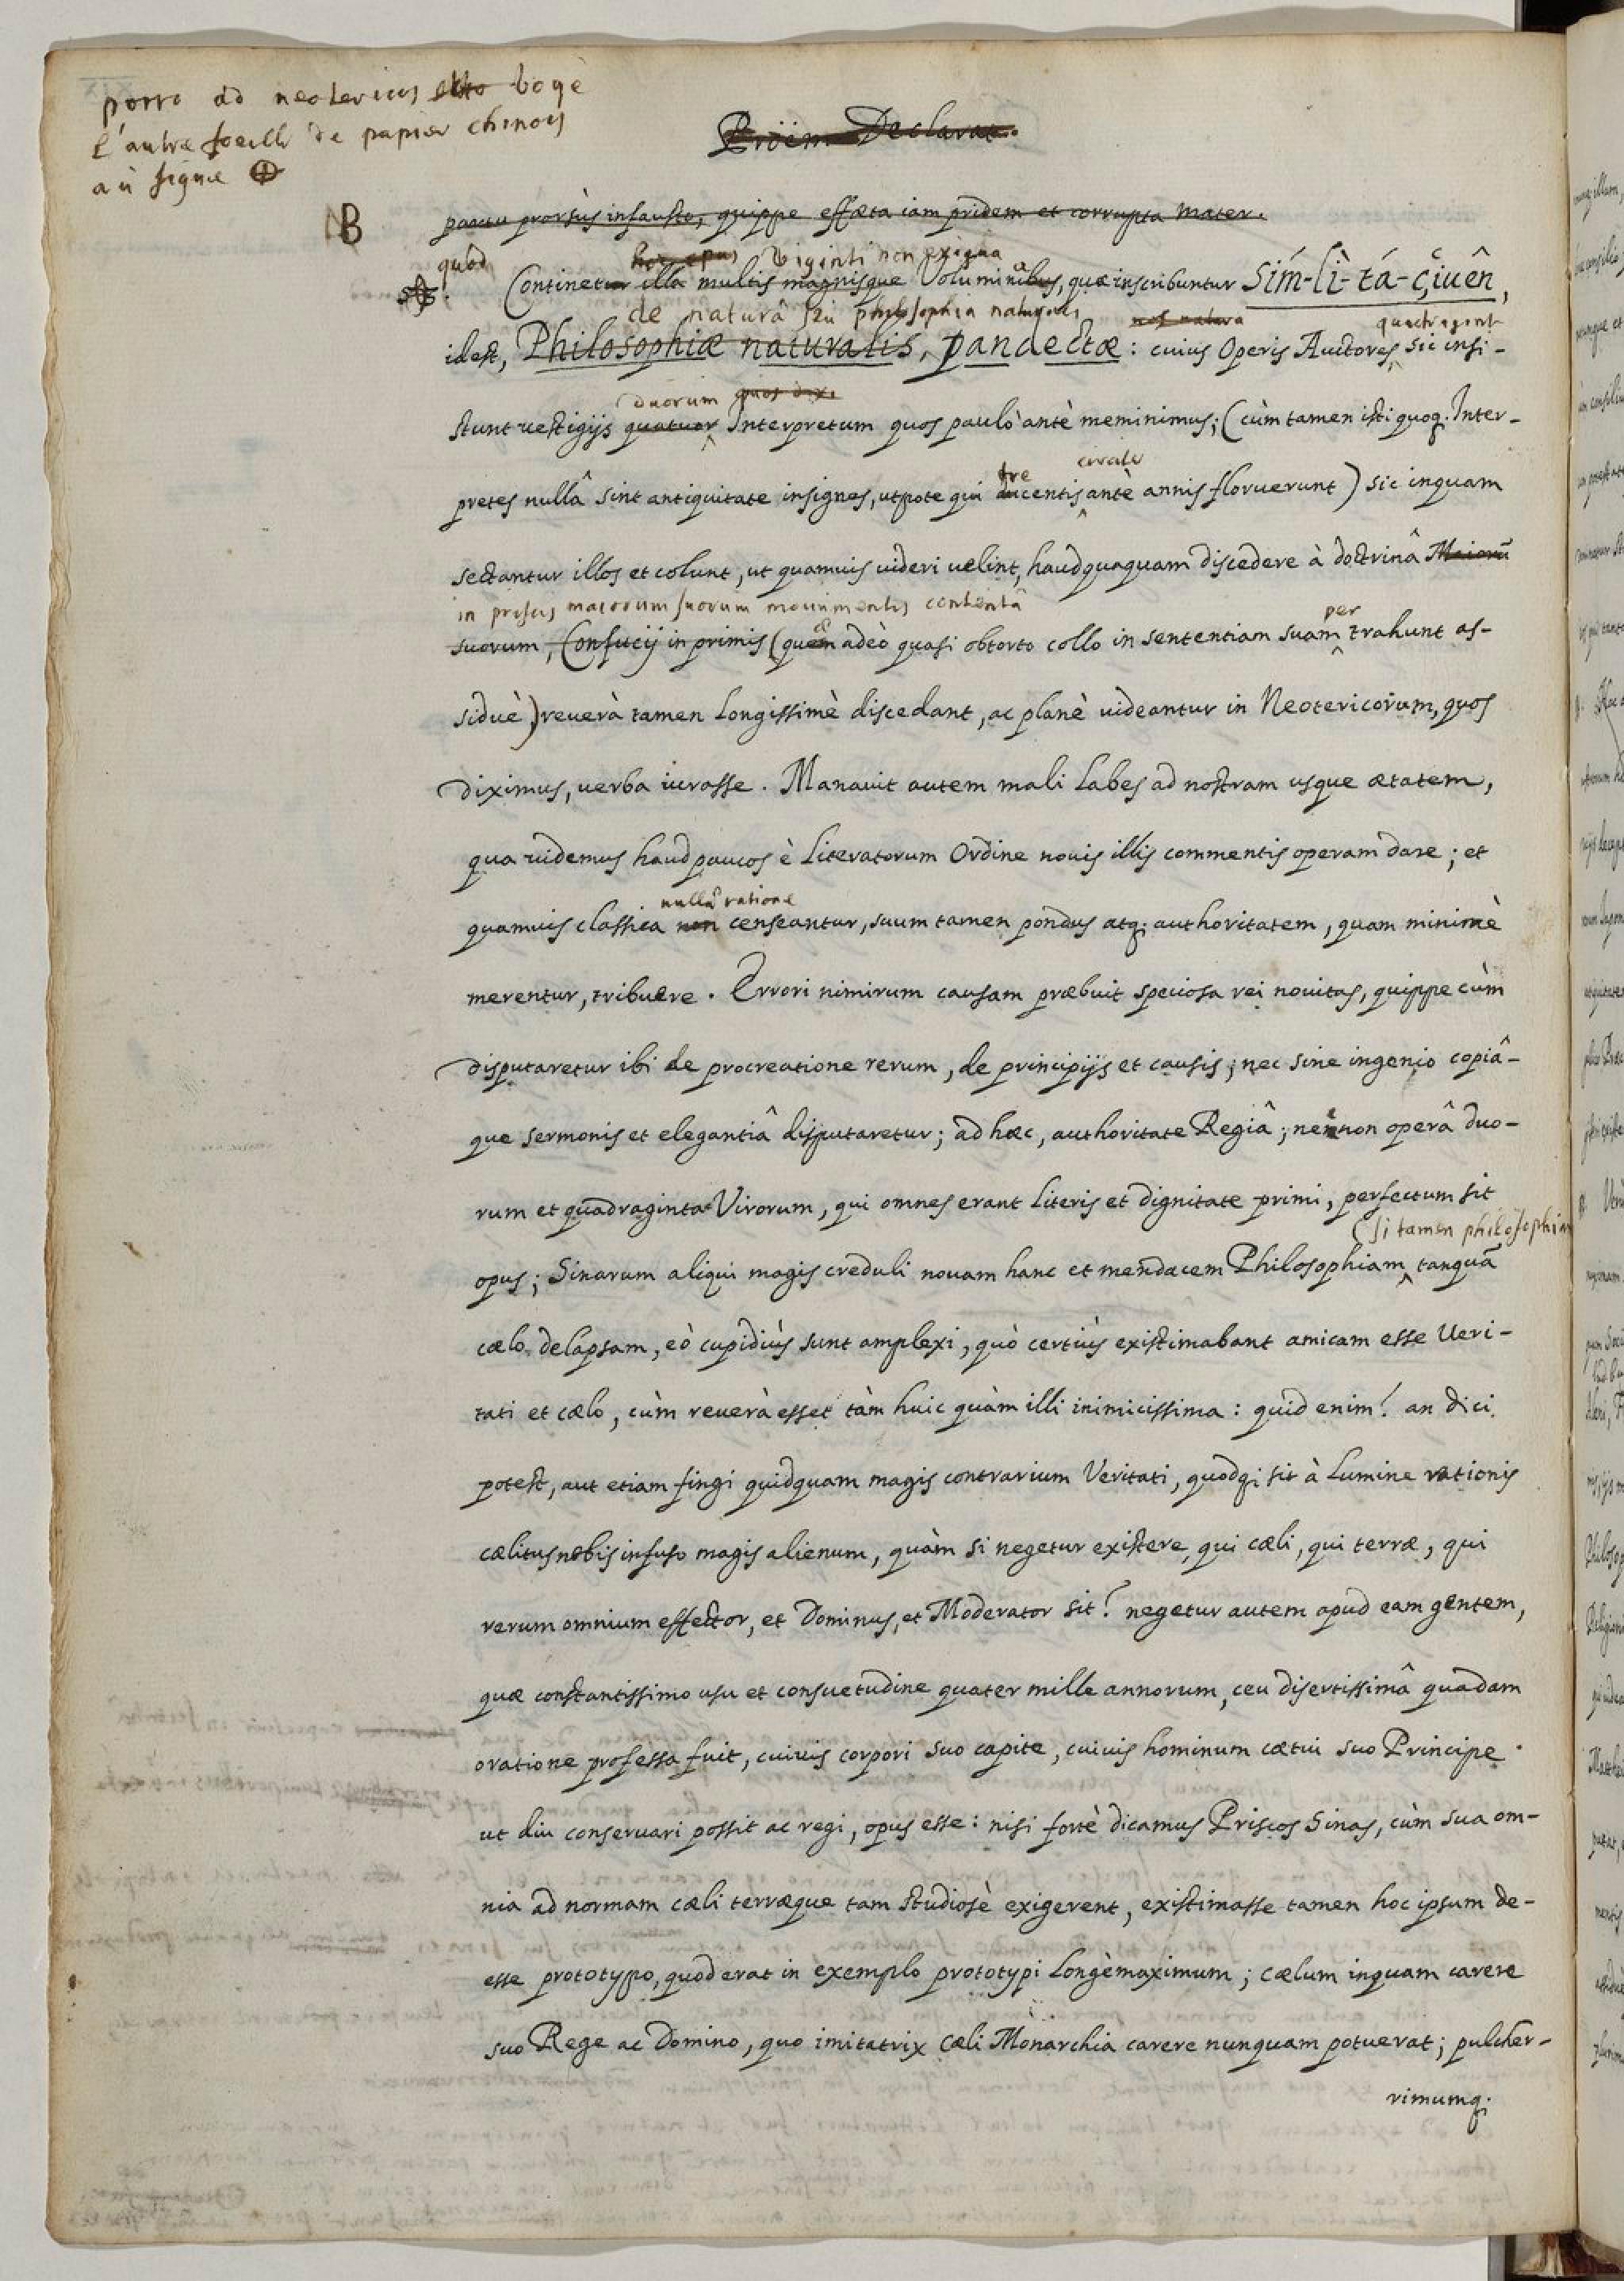 porro ad neotericos boyé
l'autre foeille de papier chinois
au signe ⊕
Proëm Declarat.
B
partu prorsùs infausto, quippe effœta iam pridem et corrupta mater.
quod hoc opus Viginti non exigua
Continetur illa multis magnisque Voluminibus, quæ inscribuntur Sím-lì-tá-çiuên,
de naturâ seu philosophia naturali, natura quadragint
idest, Philosophiæ naturalis, pandectæ: cuius Operis Auctores, sic insi-
duorum quos dixi
stunt uestigijs quatuor Interpretum quos paulò antè meminimus; (cùm tamen isti quoq. Inter-
tre
pretes nullâ sint antiquitate insignes, utpote qui ducentis antè annis floruerunt) sic inquam
sectantur illos et colunt, ut quamuis uideri uelint, haudquaquam discedere à doctrinâ Maiorū
in priscis maiorum suorum monimentis contentâ per
suorum, Confucij in primis (quem adeò quasi obtorto collo in sententiam suam trahunt as-
siduè) reuerà tamen longissimè discedant, ac planè uideantur in Neotericorum, quos
diximus, uerba iurasse. Manauit autem mali labes ad nostram usque ætatem,
qua uidemus haud paucos è Literatorum Ordine nouis illis commentis operam dare; et
nullâ ratione
quamuis classica non censeantur, suum tamen pondus atq; authoritatem, quam minimè
merentur, tribuere. Errori nimirum causam præbuit speciosa rei nouitas, quippe cùm
disputaretur ibi de procreatione rerum, de principijs et causis; nec sine ingenio copiâ-
que sermonis et elegantiâ disputaretur; ad hæc, authoritate Regiâ; necnon operâ duo-
rum et quadraginta Virorum, qui omnes erant literis et dignitate primi, perfectum sit
(si tamen philosophia
opus; Sinarum aliqui magis creduli nouam hanc et mendacem Philosophiam, tanquā
cælo delapsam, eò cupidiùs sunt amplexi, quò certiùs existimabant amicam esse Veri-
tati et cælo, cùm reuerà esset tàm huic quàm illi inimicissima: quid enim? an dici
potest, aut etiam fingi quidquam magis contrarium Veritati, quodq; sit à lumine rationis
cælitus nobis infuso magis alienum, quàm si negetur existere, qui cæli, qui terræ, qui
rerum omnium effector, et Dominus, et Moderator sit? negetur autem apud eam gentem,
quæ constantissimo usu et consuetudine quater mille annorum, ceu disertissimâ quadam
oratione professa fuit, cuiuis corpori suo capite, cuiuis hominum cœtui suo Principe
ut diu conseruari possit ac regi, opus esse: nisi fortè dicamus Priscos Sinas, cùm sua om-
nia ad normam cæli terræque tam studiosè exigerent, existimasse tamen hoc ipsum de-
esse prototypo, quod erat in exemplo prototypi longè maximum; cælum inquam carere
suo Rege ac Domino, quo imitatrix cæli Monarchia carere nunquam potuerat; pulcher-
rimumq;